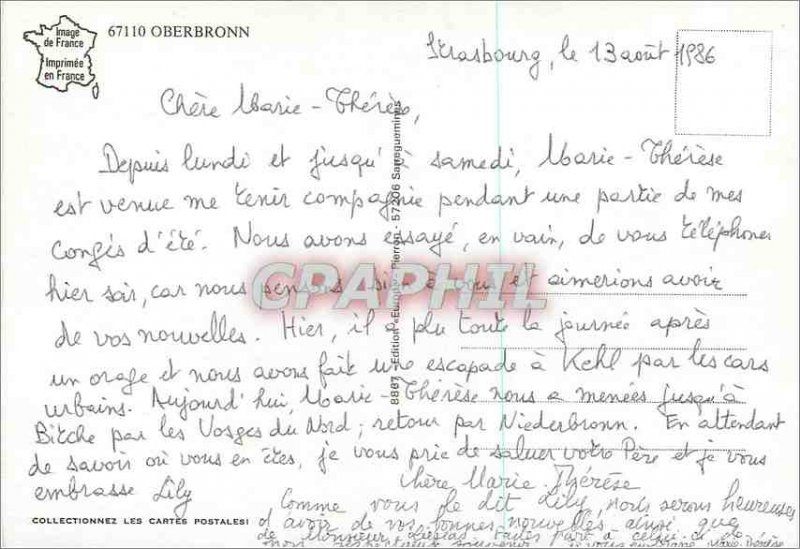 Image
de France
Imprimée
en France
67110 OBERBRONN
Strasbourg, le 13 août 1986
Chère Marie-Thérèse,
Depuis lundi et jusqu'à samedi, Marie-Thérèse
est venue me tenir compagnie pendant une partie de mes
congés d'été. Nous avons essayé, en vain, de vous téléphoner
hier soir, car nous pensons bien à vous et aimerions avoir
de vos nouvelles. Hier, il a plu toute la journée après
un orage et nous avons fait une escapade à Kehl par les cars
urbains. Aujourd'hui, Marie-Thérèse nous a menées jusqu'à
Bitche par les Vosges du Nord ; retour par Niederbronn. En attendant
de savoir où vous en êtes, je vous prie de saluer votre Père et je vous
embrasse Lily
Chère Marie-Thérèse
Comme vous le dit Lily, nous serons heureuses
d'avoir de vos bonnes nouvelles ainsi que
de Monsieur faites part à celui-ci de
mon respectueux souvenir Je vous embrasse Marie-Thérèse
8867 - Edition «Europe» - Pierron - 57206 Sarreguemines
COLLECTIONNEZ LES CARTES POSTALES!
CPAPHIL